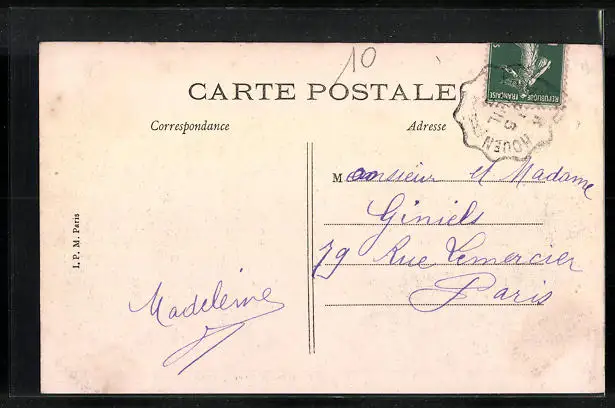 10
CARTE POSTALE
Correspondance
Adresse
REPUBLIQUE FRANÇAISE
5
ROUEN
Monsieur et Madame
Giniels
79 Rue Lemercier
Paris
I. P. M. Paris
Madeleine